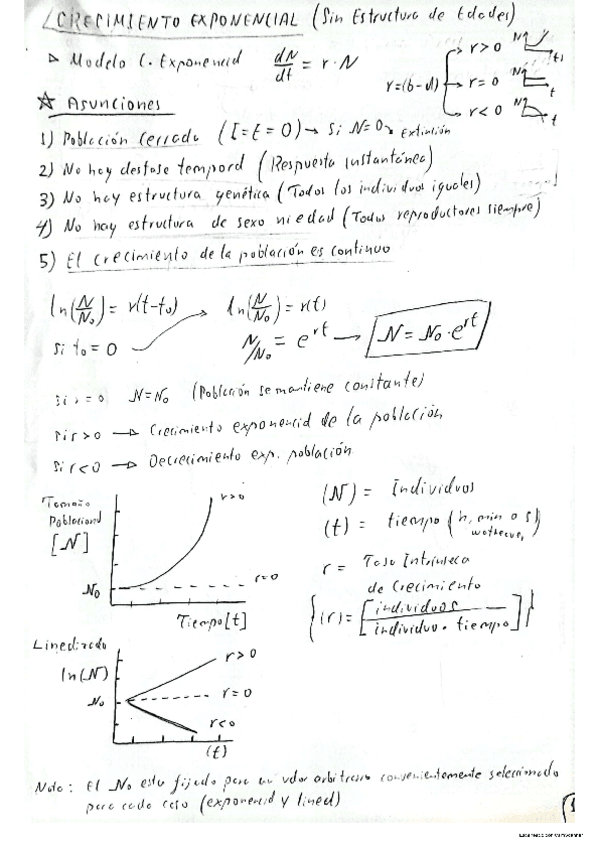 CRECIMIENTO EXPONENCIAL (Sin Estructura de Edades)
▷ Modelo C. Exponencial dN/dt = r · N
r=(b-d)
r > 0 N t
r = 0 N t
r < 0 N t
☆ Asunciones
1) Población Cerrada (I=E=0) → Si N=0 → Extinción
2) No hay desfase temporal (Respuesta Instantánea)
3) No hay estructura genética (Todos los individuos iguales)
4) No hay estructura de sexo ni edad (Todos reproductores siempre)
5) El crecimiento de la población es continuo
ln(N/No) = r(t-to)
si to = 0
ln(N/No) = r(t)
N/No = e^rt → N = No · e^rt
si r = 0 N=No (Población se mantiene constante)
si r > 0 → Crecimiento exponencial de la población
si r < 0 → Decrecimiento exp. población
Tamaño
Poblacional
[N]
r>0
No
r=0
Tiempo [t]
(N) = Individuos
(t) = tiempo (h, min o s)
r = Tasa Intrínseca
de Crecimiento
{(r) = [individuos / individuo · tiempo]}
Linealizado
ln(N)
r > 0
No
r = 0
r<0
(t)
Nota: El No esta fijado para un valor arbitrario convenientemente seleccionado
para cada caso (exponencial y lineal)
1